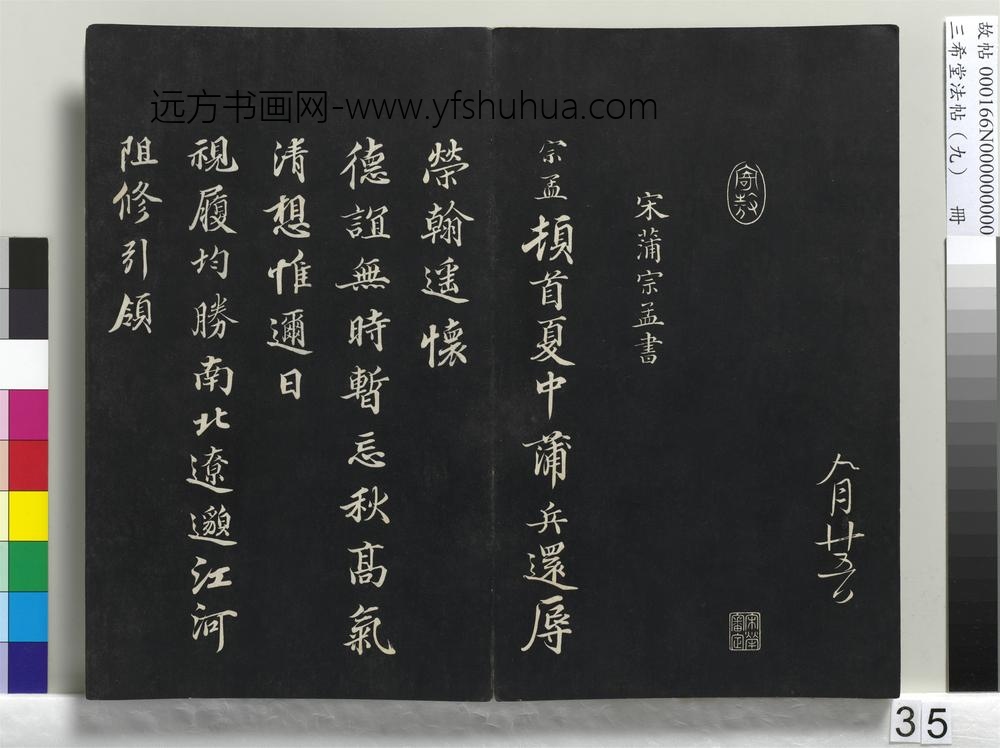 远方书画网-www.yfshuhua.com
八月廿五日
宋蒲宗孟書
宗孟頓首夏中蒲兵還辱
榮翰遥懷
德誼無時暫忘秋髙氣
清想惟邇日
視履均勝南北遼邈江河
阻修引領
故帖 000166N000000000
三希堂法帖（九） 冊
35